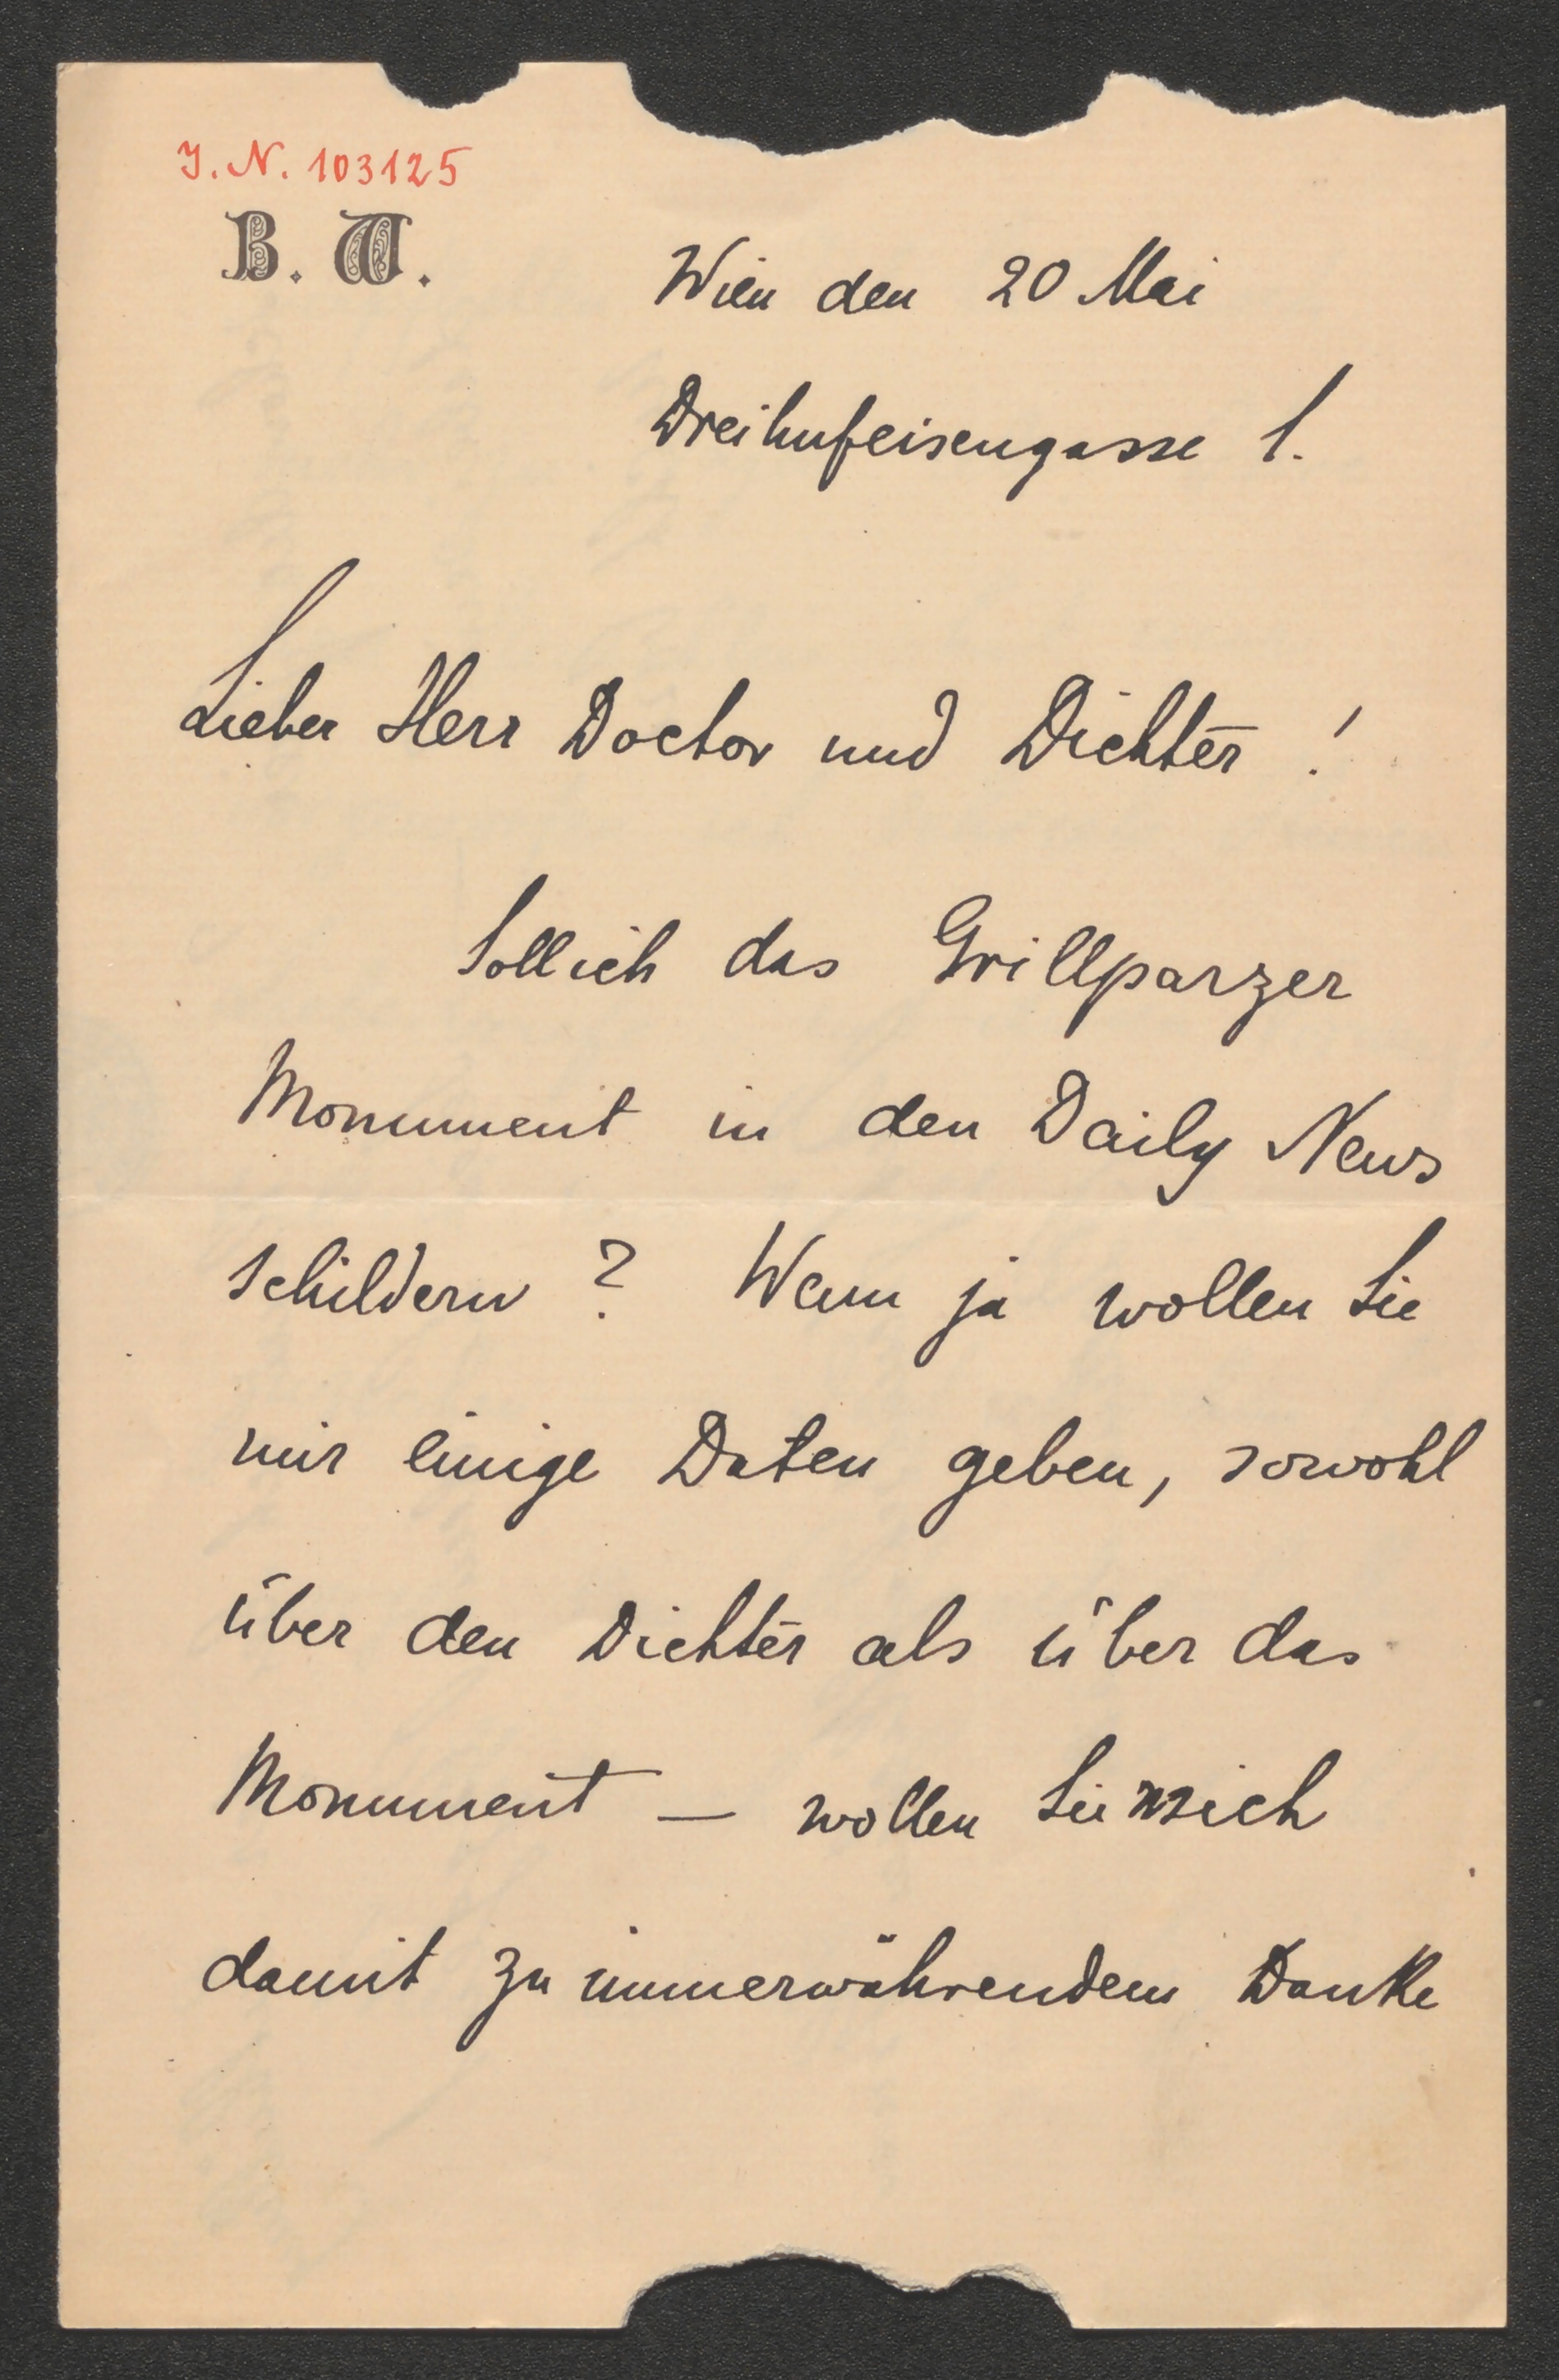 J. N. 103125
B. W.
Wien den 20 Mai
Dreihufeisengasse 1.
Lieber Herr Doctor und Dichter !
Soll ich das Grillparzer
Monument in den Daily News
schildern ? Wenn ja wollen Sie
mir einige Daten geben, sowohl
über den Dichter als über das
Monument – wollen Sie sich
damit zu immerwährendem Danke